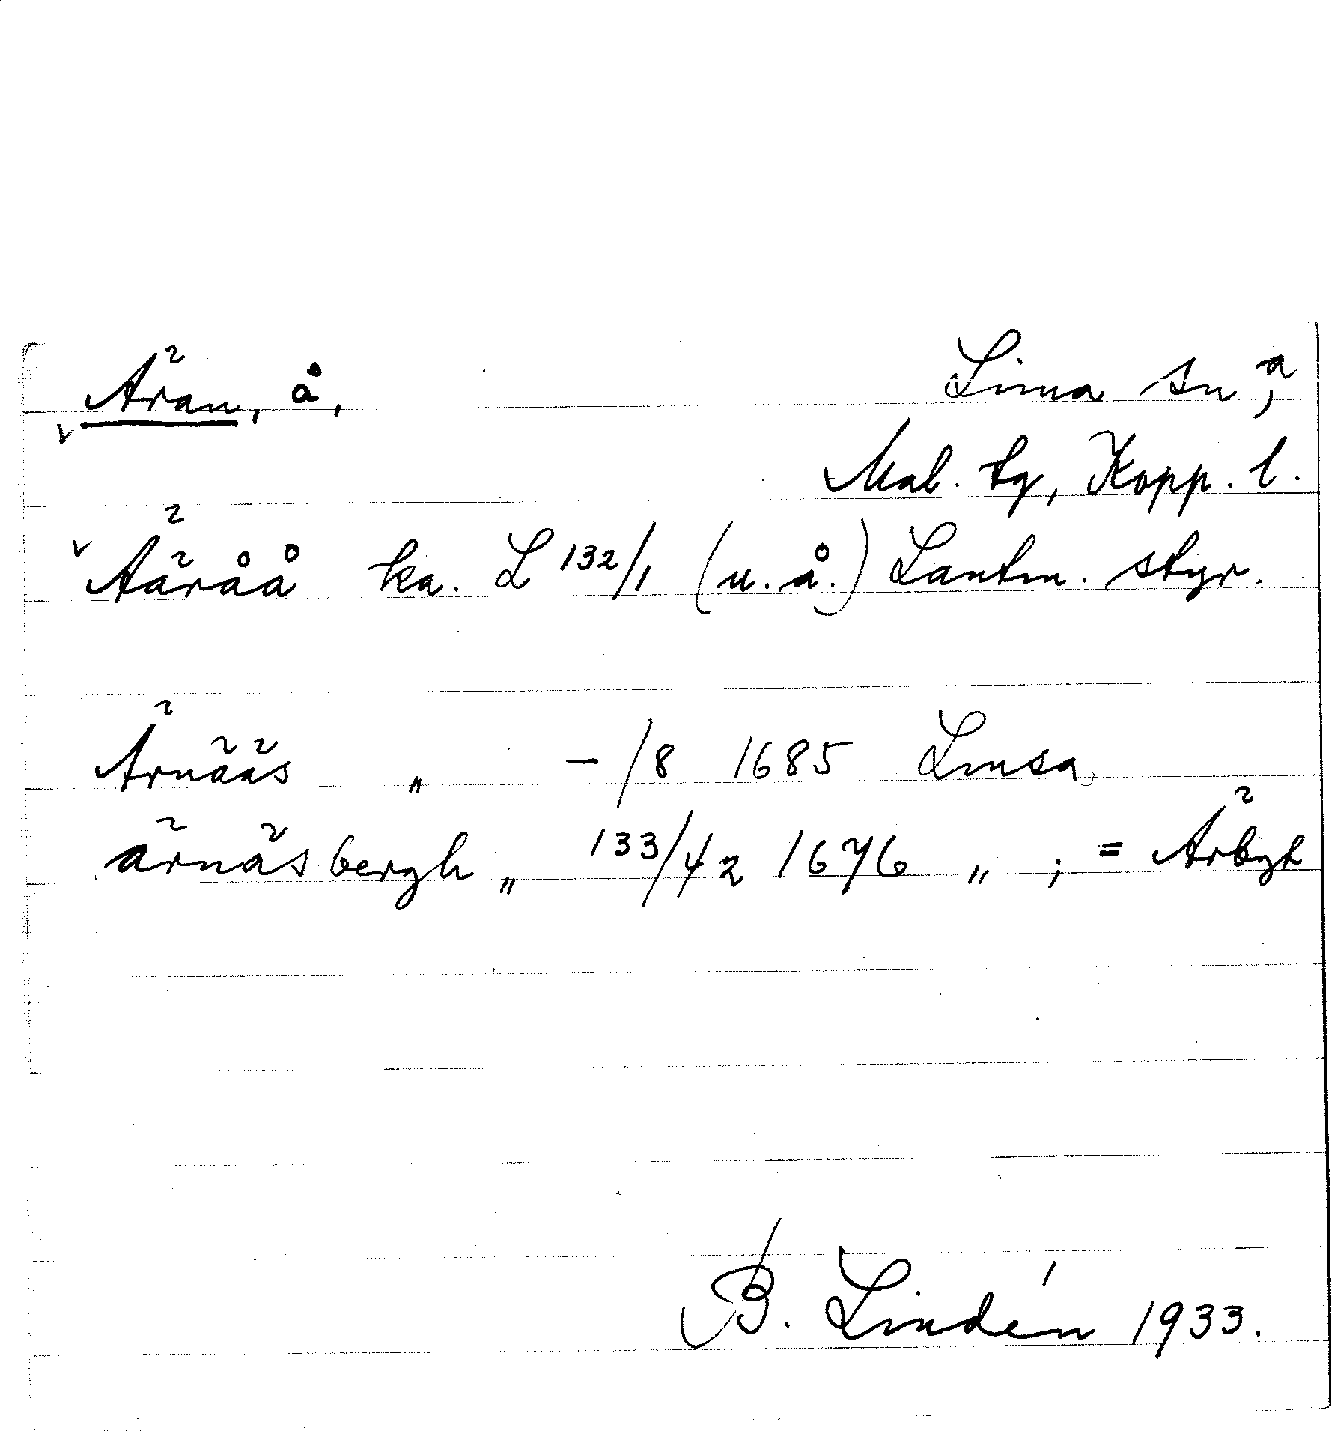 Äran, å, Lima sn,
Mal. tg, Kopp. l.
Ääråå ka. L 132/1 (u.å.) Lantm. styr.
Ärnääs „ -/8 1685 Limsa
ärnäsbergh „ 133/42 1676 „ ; = Ärbgh
B. Lindén 1933.